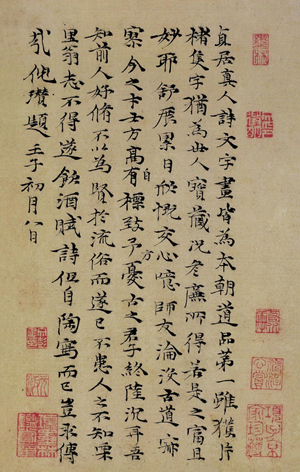 貞居真人詩文字畫皆為本朝道品第一雖獲片
楮隻字猶為世人寶藏況彥廉所得若是之富且
妙耶舒展累日欣慨交心憶師友淪沒古道寂
寥今之才士方高有自標致予方憂古之君子終陸沉耳吾
知前人好脩不以為賢於流俗而遂已不患人之不知栗
里翁志不得遂飲酒賦詩但自陶寫而已豈求傳
哉倪瓚題壬子初月八日